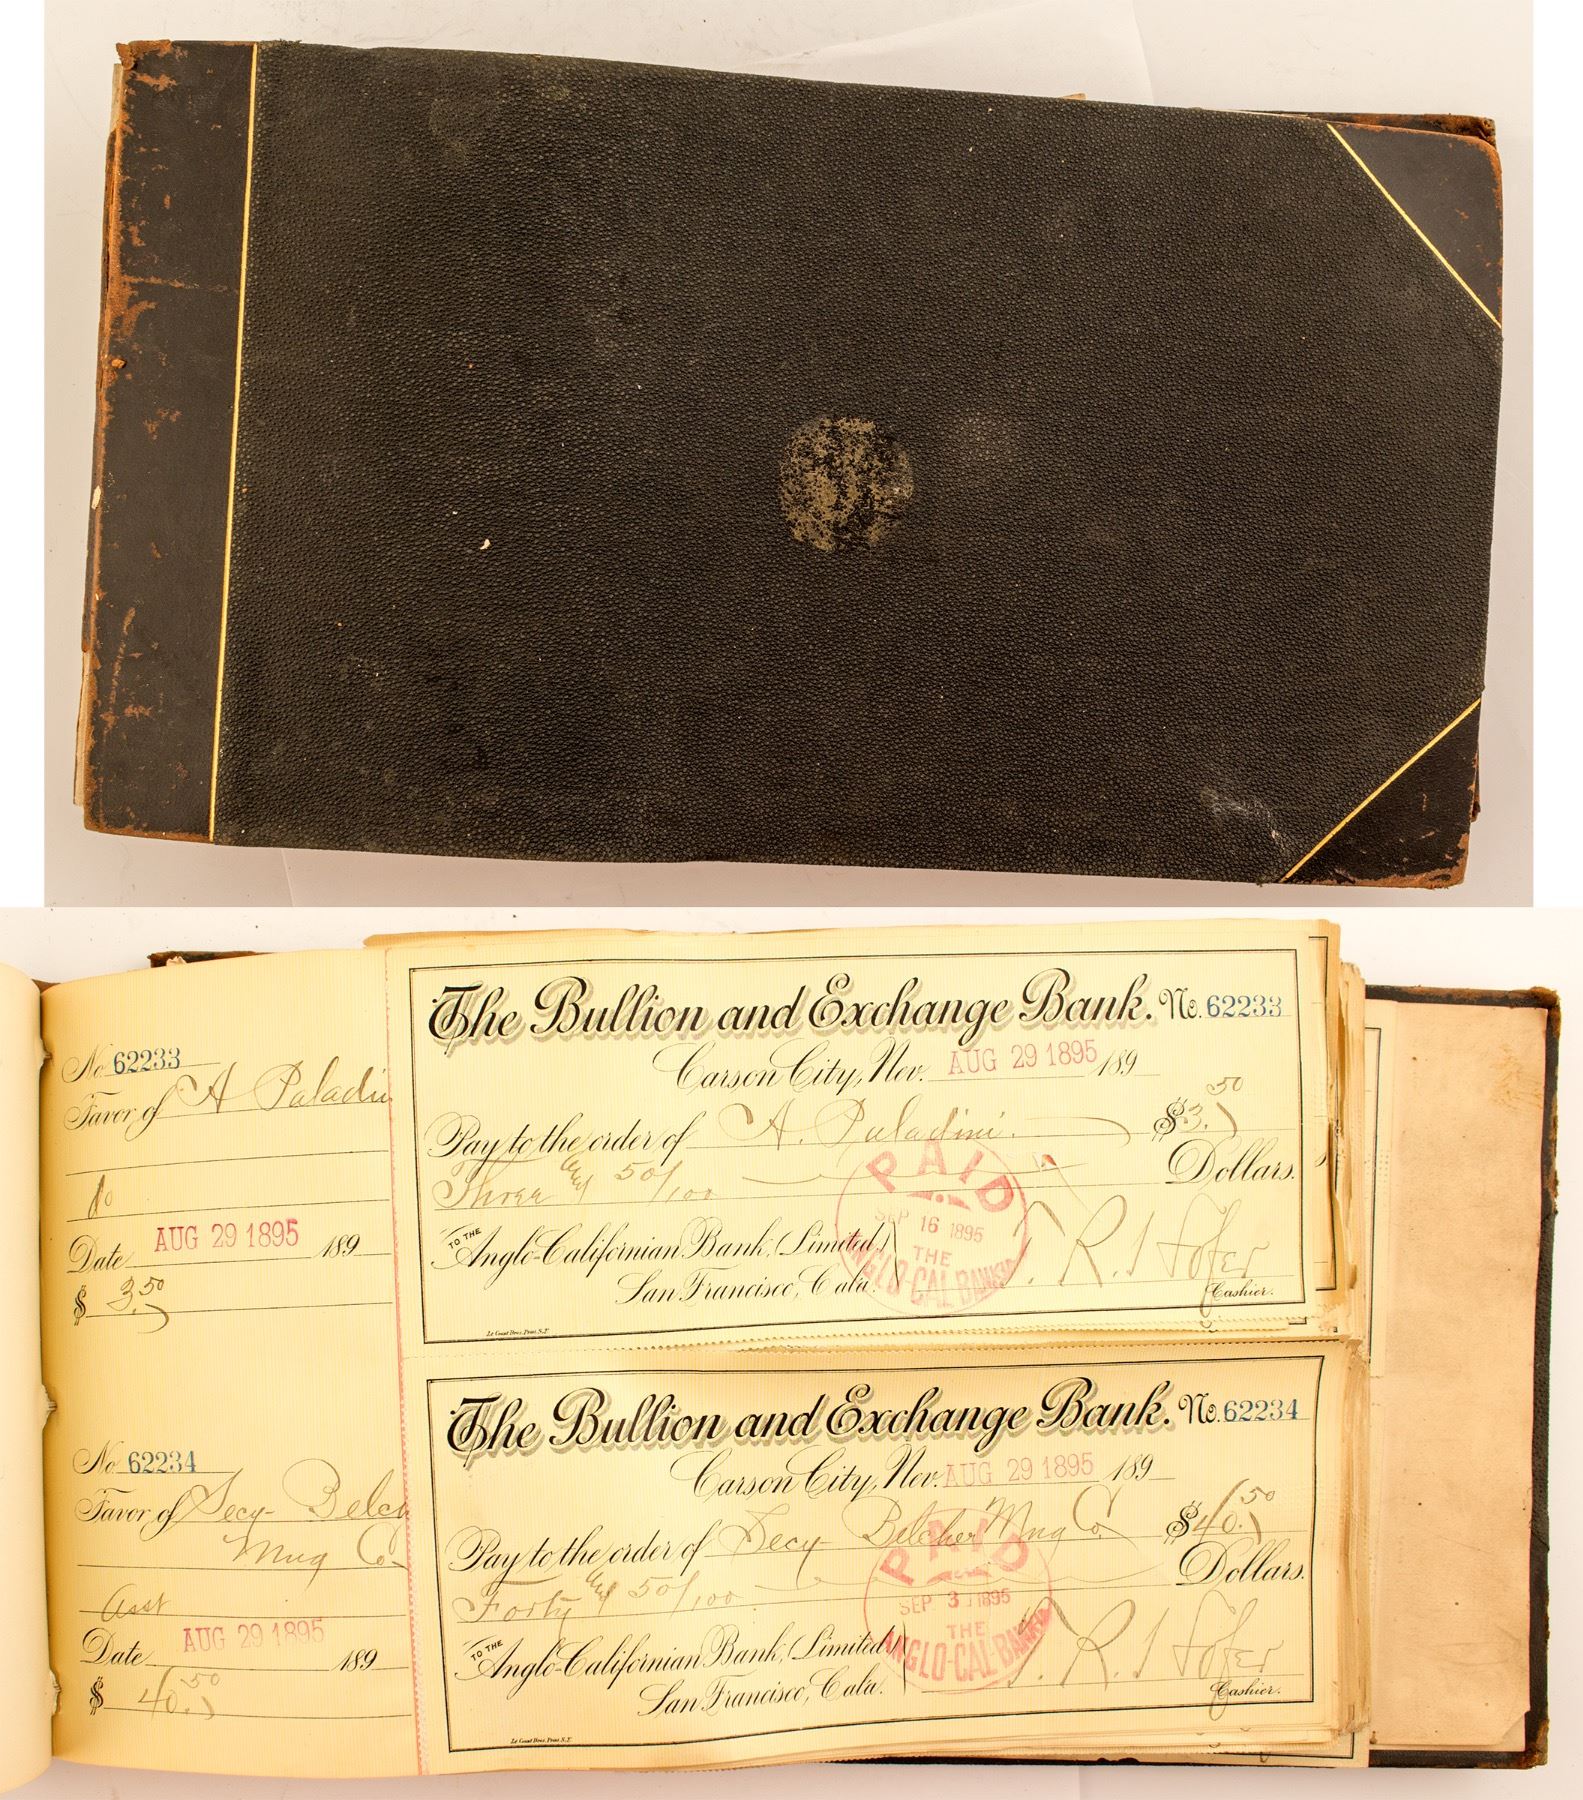 No. 62233
Favor of A Paladini
Date AUG 29 1895 189
$ 3.50
The Bullion and Exchange Bank. No. 62233
Carson City, Nev. AUG 29 1895 189
Pay to the order of A. Paladini. $3.50
Three and 50/100 Dollars.
TO THE
Anglo-Californian Bank, (Limited,)
San Francisco, Cala.
T. R. Hofer
Cashier.
PAID
SEP 16 1895
THE
ANGLO-CAL-BANK
No. 62234
Favor of Secy Belcher
Mng Co
Asst
Date AUG 29 1895 189
$ 40.50
The Bullion and Exchange Bank. No. 62234
Carson City, Nev. AUG 29 1895 189
Pay to the order of Secy Belcher Mng Co. $40.50
Forty and 50/100 Dollars.
TO THE
Anglo-Californian Bank, (Limited,)
San Francisco, Cala.
T. R. Hofer
Cashier.
PAID
SEP 3 1895
THE
ANGLO-CAL-BANK